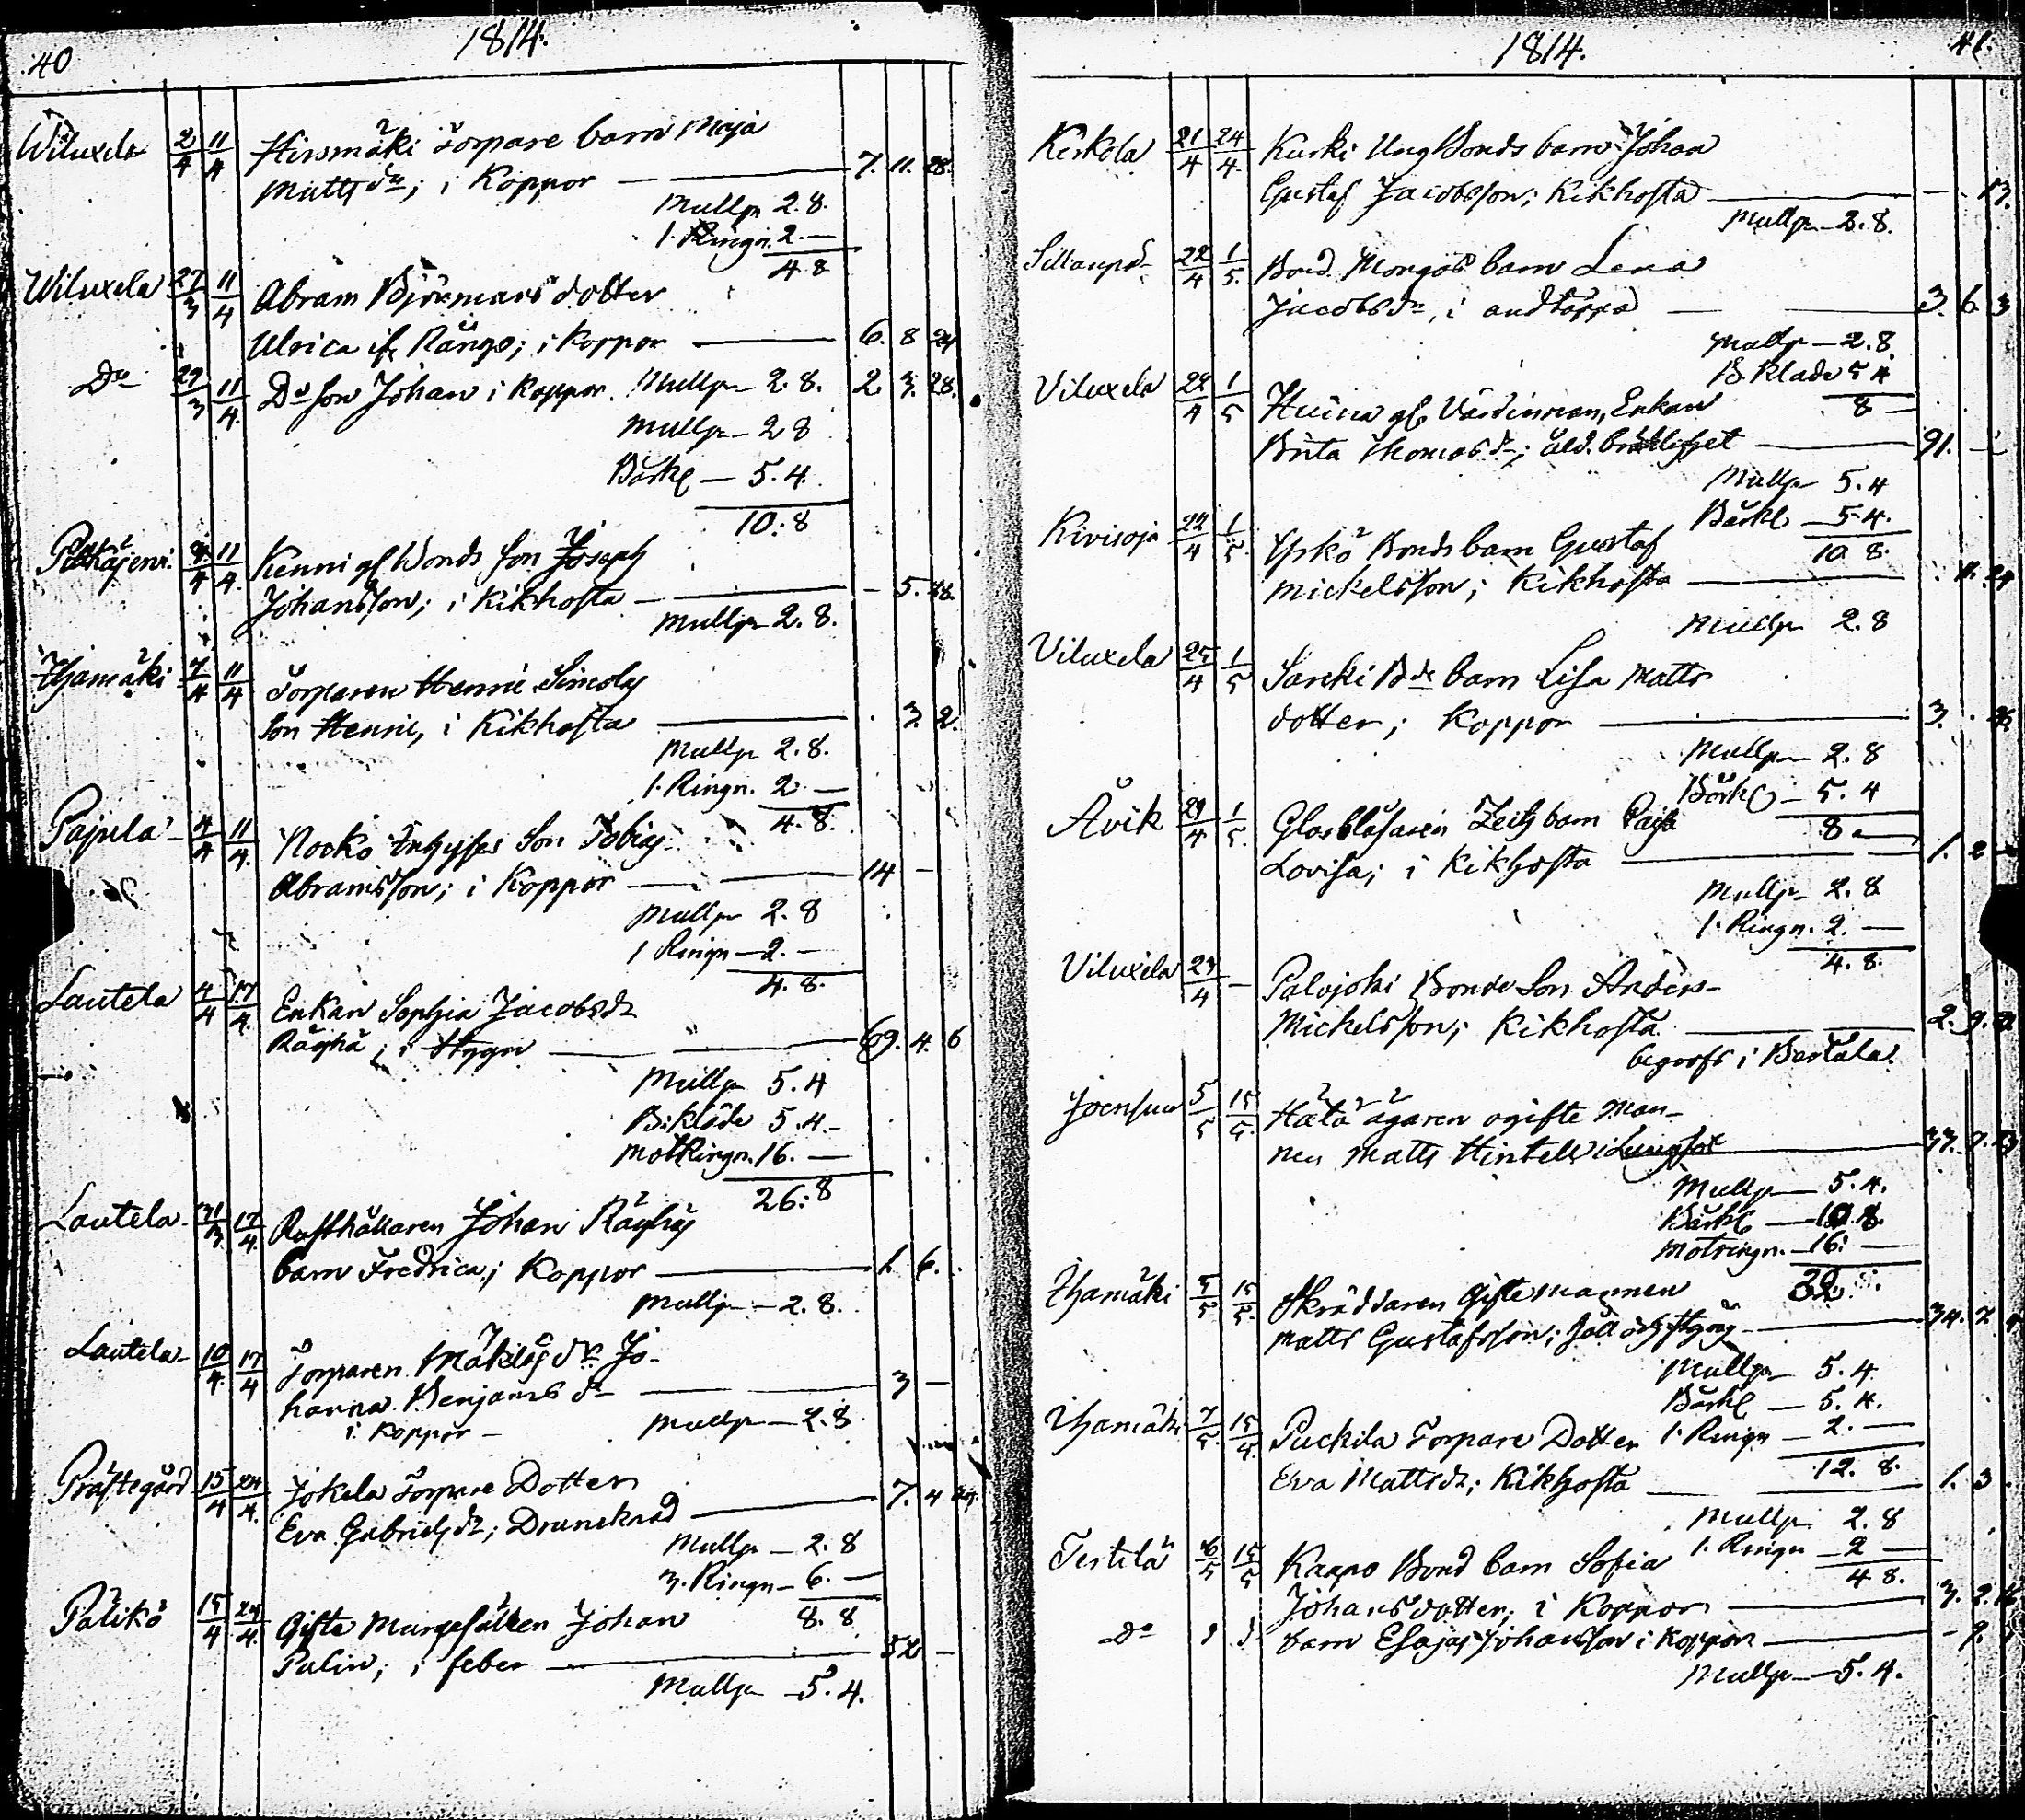 40 1814.
Wiluxela 2/4 11/4 Hirsmäki Torpare barn Maja
Matts dr; i Koppor — 7. 11. 28.
Mullp 2.8.
1. Ringn. 2. —
4 8
Wiluxela 27/3 11/4 Abram Björnmans dotter
Ulrica ; i Koppor — 6. 8 24
Do 29/3 11/4 Do Son Johan i Koppor. Mullp — 2. 8. 2 3. 28.
Mullp — 2 8
Bårkl — 5. 4.
10: 8
11/4 Kenni gl. Bonds Son Joseph
Johansson; i Kikhosta — 5. 28.
Mullp — 2. 8.
7/4 11/4 Torparen Henric Simolas
Son Henric, i Kikhosta — 3. 2.
Mullp 2. 8.
1. Ringn. 2 —
4. 8.
Pajula 4/4 11/4 Nocko Inhyses Son Tobias
Abramsson; i Koppor — 14 —
Mullp 2. 8
1 Ringn — 2. —
4. 8.
Lautela 4/4 17/4 Enkan Sophia Jacobsdr
i Hygn — 69. 4. 6
Mullp 5. 4
B: kläde 5. 4 —
MotRingn. 16. —
26: 8
Lautela 31/3 17/4 Rusthållaren Johan
barn Fredrica; Koppor — 1. 6.
Mullp — 2. 8.
Lautela 10/4 17/4 Torparen Mäkiläs dr Jo-
hanna Benjams dr — 3 —
i Koppor — Mullp — 2. 8
Prästegård 15/4 24/4 Jokela Torpare Dotter
Eva Gabriels dr; Drunknad — 7. 4 24.
Mullp — 2. 8
3. Ringn — 6. —
8. 8
Palikö 15/4 24/4 Gifta Johan
Palin; i feber — 52 —
Mullp — 5. 4.
1814. 41.
Kerkola 21/4 24/4 Kurki Ung Bonds barn Johan
Gustaf Jacobsson; Kikhosta — 13.
Mullp — 2. 8.
22/4 1/5 Bond. barn Lena
Jacobs dr, i andtäppa — 3. 6 3
Mullp — 2. 8.
B. Kläde 5 4
8 —
Viluxela 22/4 1/5 gl. Värdinnan, Enkan
Brita Thomas dr; åld. bräcklighet — 91. —
Mullp 5. 4
Bårkl — 5. 4.
10 8.
Kivisoja 22/4 1/5 Yskö Bonds barn Gustaf
Mickelsson; Kikhosta — 11. 24
Mullp 2. 8
Viluxela 25/4 1/5 Bds barn Lisa Matts
dotter; Koppor — 3. 26
Mullp — 2. 8
Bårkl — 5. 4
8 —
Åvik 29/4 1/5 Glasblåsaren barn
Lovisa; i Kikhosta — 1. 2 —
Mullp — 2. 8
1. Ringn. 2. —
4. 8.
Viluxela 23/4 — Palojoki Bonde Son Anders
Michelsson; Kikhosta — 2. 9. 22
begrofs i Bertula
Joensuu 5/5 15/5 ägaren ogifte Man-
nen Matts i Lungsot — 37. 9. 23
Mullp — 5. 4.
Bårkl — 10. 8.
Motringn. — 16: —
32
5/5 15/5 Skräddaren Gifte mannen
Matts Gustafsson; — 34. 7.
Mullp — 5. 4
Bårkl — 5. 4.
1. Ringn — 2. —
12. 8.
7/5 15/5 Puckila Torpare Dotter
Eva Matts dr; Kikhosta — 1. 3
Mullp 2. 8
1. Ringn — 2 —
4 8.
Tertilä 6/5 15/5 Kaapo Bond barn Sofia
Johansdotter; i Koppor — 3. 2.
Do barn Esajas Johansson i Koppor —
Mullp — 5. 4.